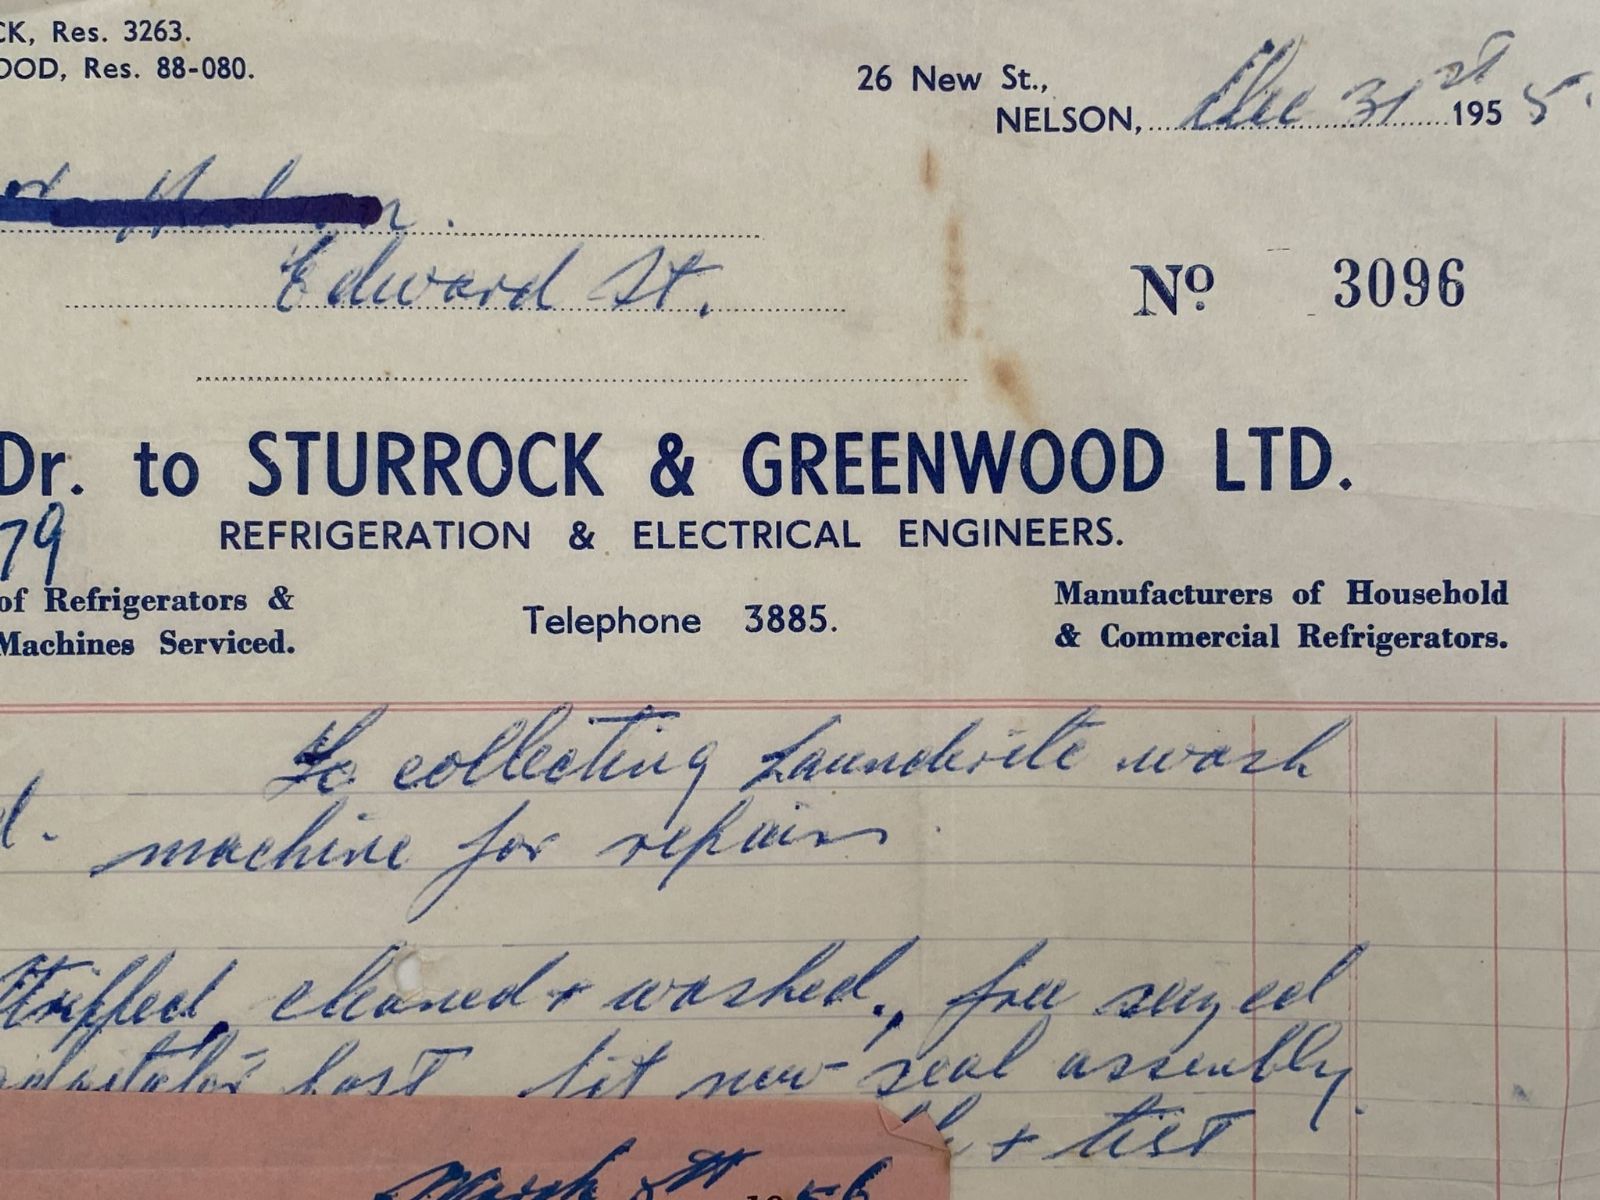 CK, Res. 3263.
OOD, Res. 88-080.
26 New St.,
NELSON, Dec 31st 1955.
Edward St.
No 3096
Dr. to STURROCK & GREENWOOD LTD.
79
REFRIGERATION & ELECTRICAL ENGINEERS.
of Refrigerators &
Machines Serviced.
Telephone 3885.
Manufacturers of Household
& Commercial Refrigerators.
To collecting Laundrite wash
d. machine for repairs.
Stripped, cleaned + washed, free seyzed
fit new seal assembly
+ test
March 1956